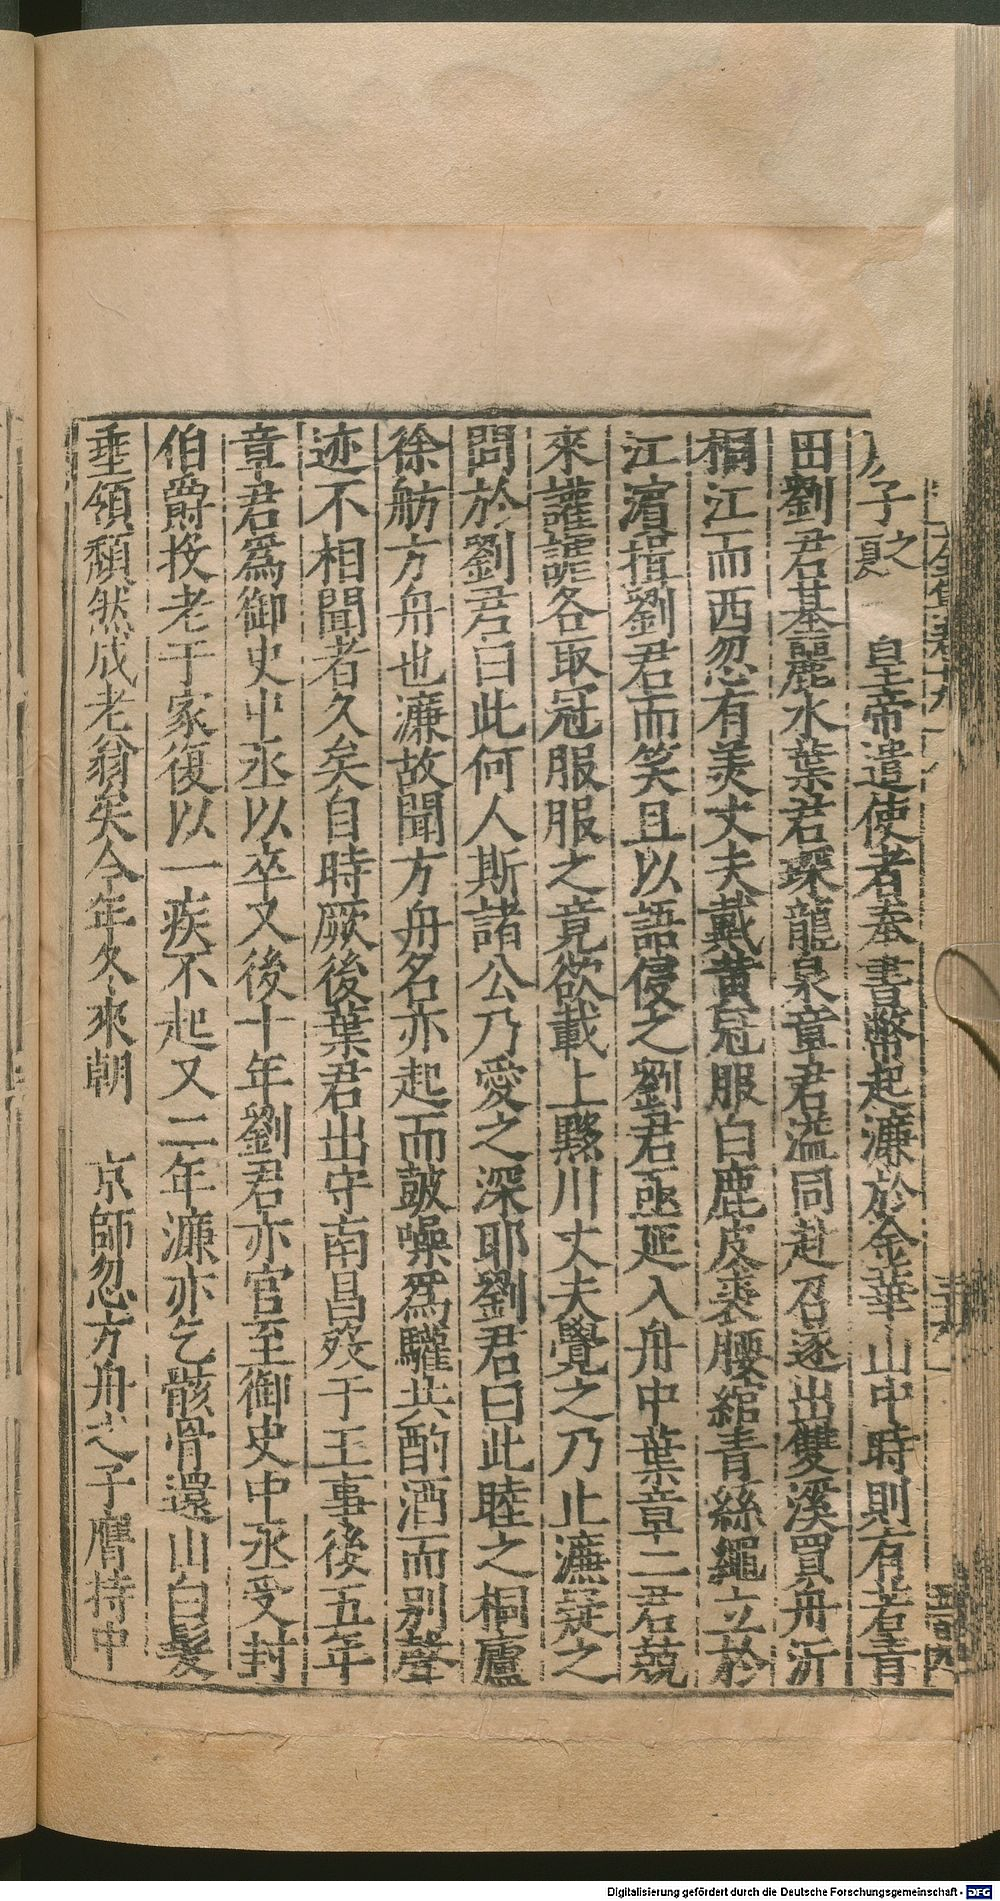 子之夏　皇帝遣使者奉書幣起濂於金華山中時則有若青
田劉君基麗水葉君琛龍泉章君溢同赴召逐出雙溪買舟沂
桐江而西忽有美丈夫戴黃冠服白鹿皮裘腰綰青絲繩立於
江濵揖劉君而笑且以語侵之劉君亟延入舟中葉章二君競
來讙謔各取冠服服之竟欲載上黟川丈夫覺之乃止濂疑之
問於劉君曰此何人斯諸公乃愛之深耶劉君曰此睦之桐廬
徐舫方舟也濂故聞方舟名亦起而皷噪爲驩共酌酒而别聲
迹不相聞者久矣自時厥後葉君出守南昌歿于王事後五年
章君爲御史中丞以卒又後十年劉君亦官至御史中丞受封
伯爵投老于家復以一疾不起又二年濂亦乞骸骨還山白髮
垂領頹然成老翁矣今年冬來朝　京師忽方舟之子膺持中
五百四
Digitalisierung gefördert durch die Deutsche Forschungsgemeinschaft - DFG